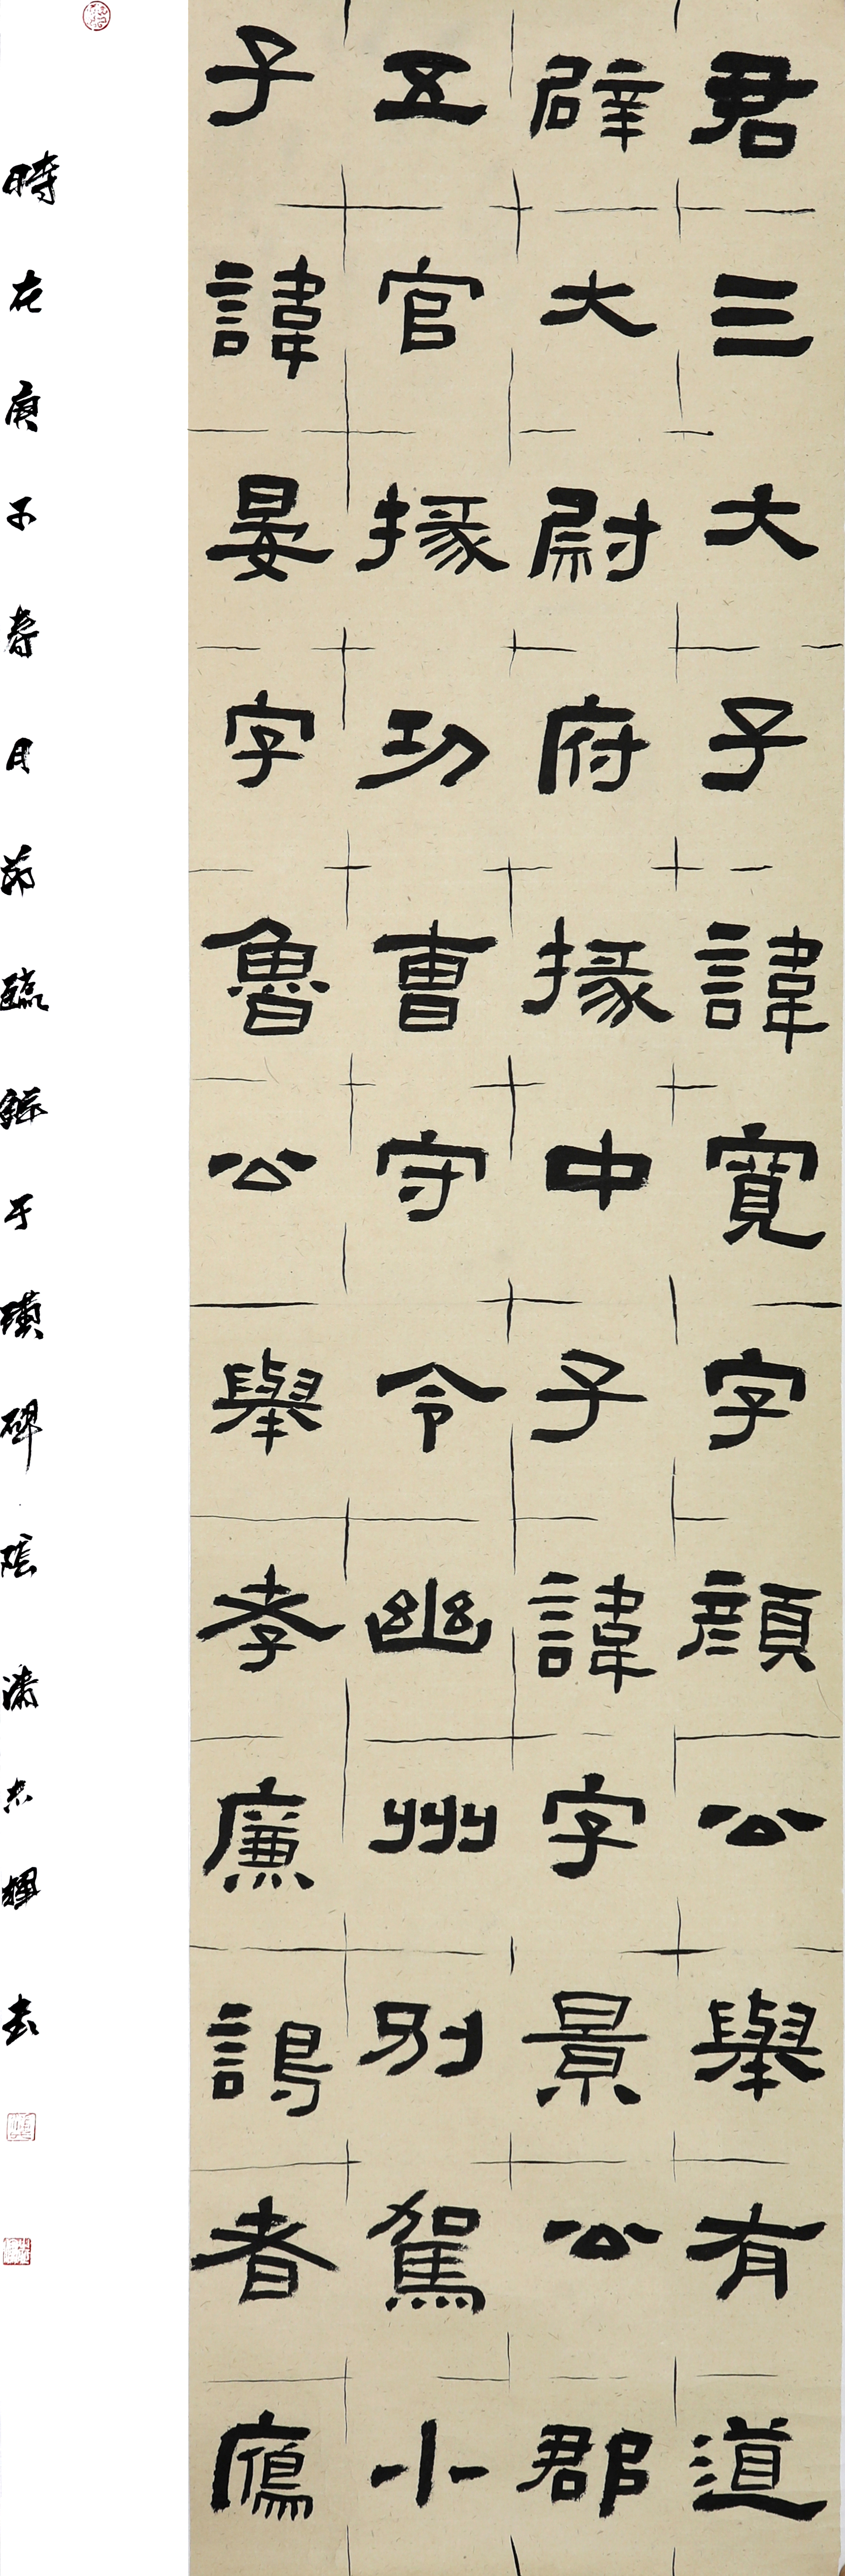 君三大子諱寬字顏公舉有道
辟大尉府掾中子諱字景公郡
五官掾功曹守令幽州別駕小
子諱晏字魯公舉孝廉謁者鴈
時在庚子春月節臨鮮于璜碑陰潘志輝書